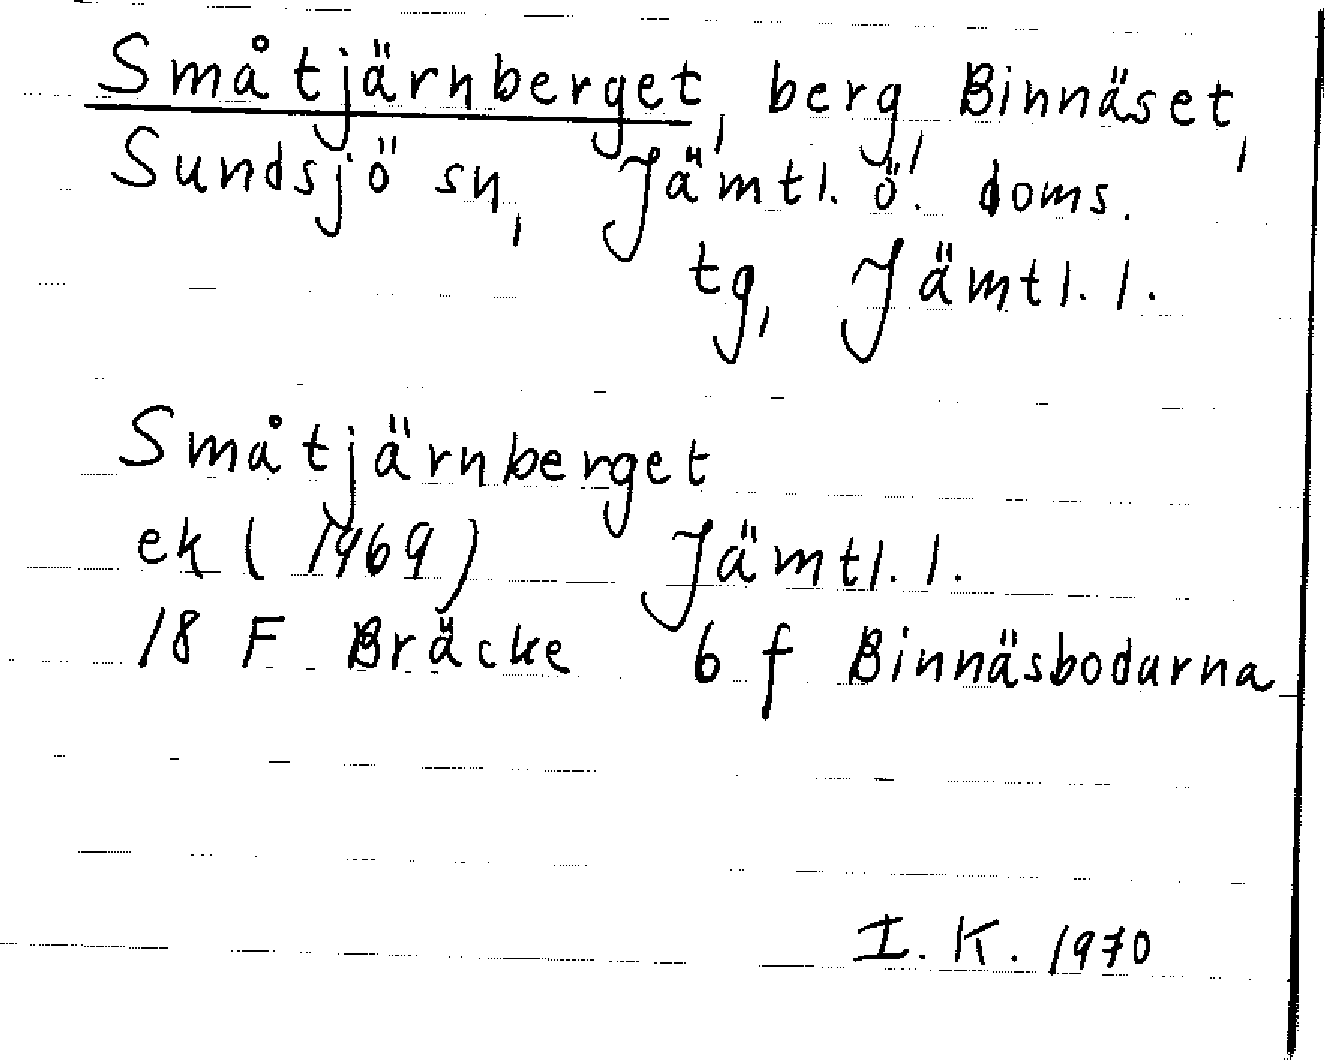 Småtjärnberget, berg, Binnäset,
Sundsjö sn, Jämtl. ö. doms.
tg, Jämtl. l.
Småtjärnberget
ek (1969) Jämtl. l.
18 F Bräcke 6 f Binnäsbodarna
I. K. 1970